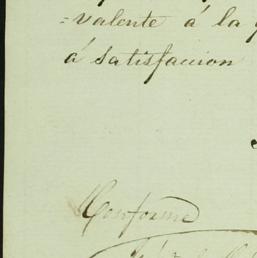 =valente á la
á satisfaccion
Conforme